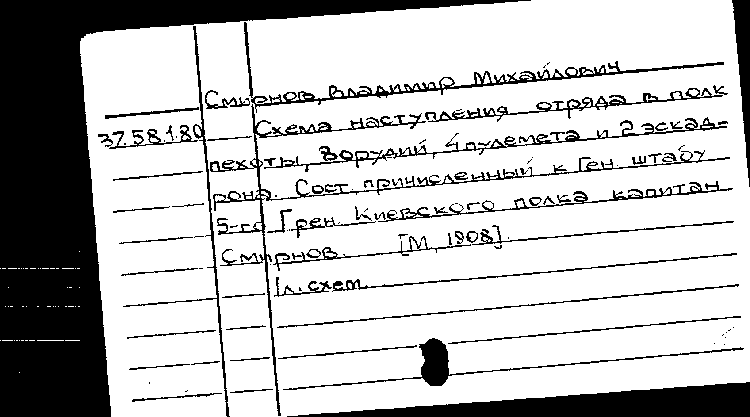 Смирнов, Владимир Михайлович
37.58.1.80 Схема наступления отряда в полк
пехоты, 8 орудий, 4 пулемета и 2 эскад-
рона. Сост. причисленный к Ген. штабу
5-го Грен. Киевского полка капитан
Смирнов. [М, 1908].
1 л. схем.